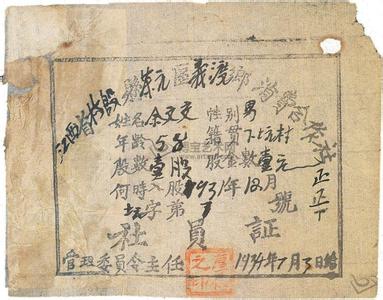 江西省
縣東元區義渡鄉消費合作社
姓名余文交性別男
年齡58籍貫下坑村
股數壹股股金數壹元
何時入股1931年12月
坑字第7號
社員証
管理委員会主任 1934年1月3日給